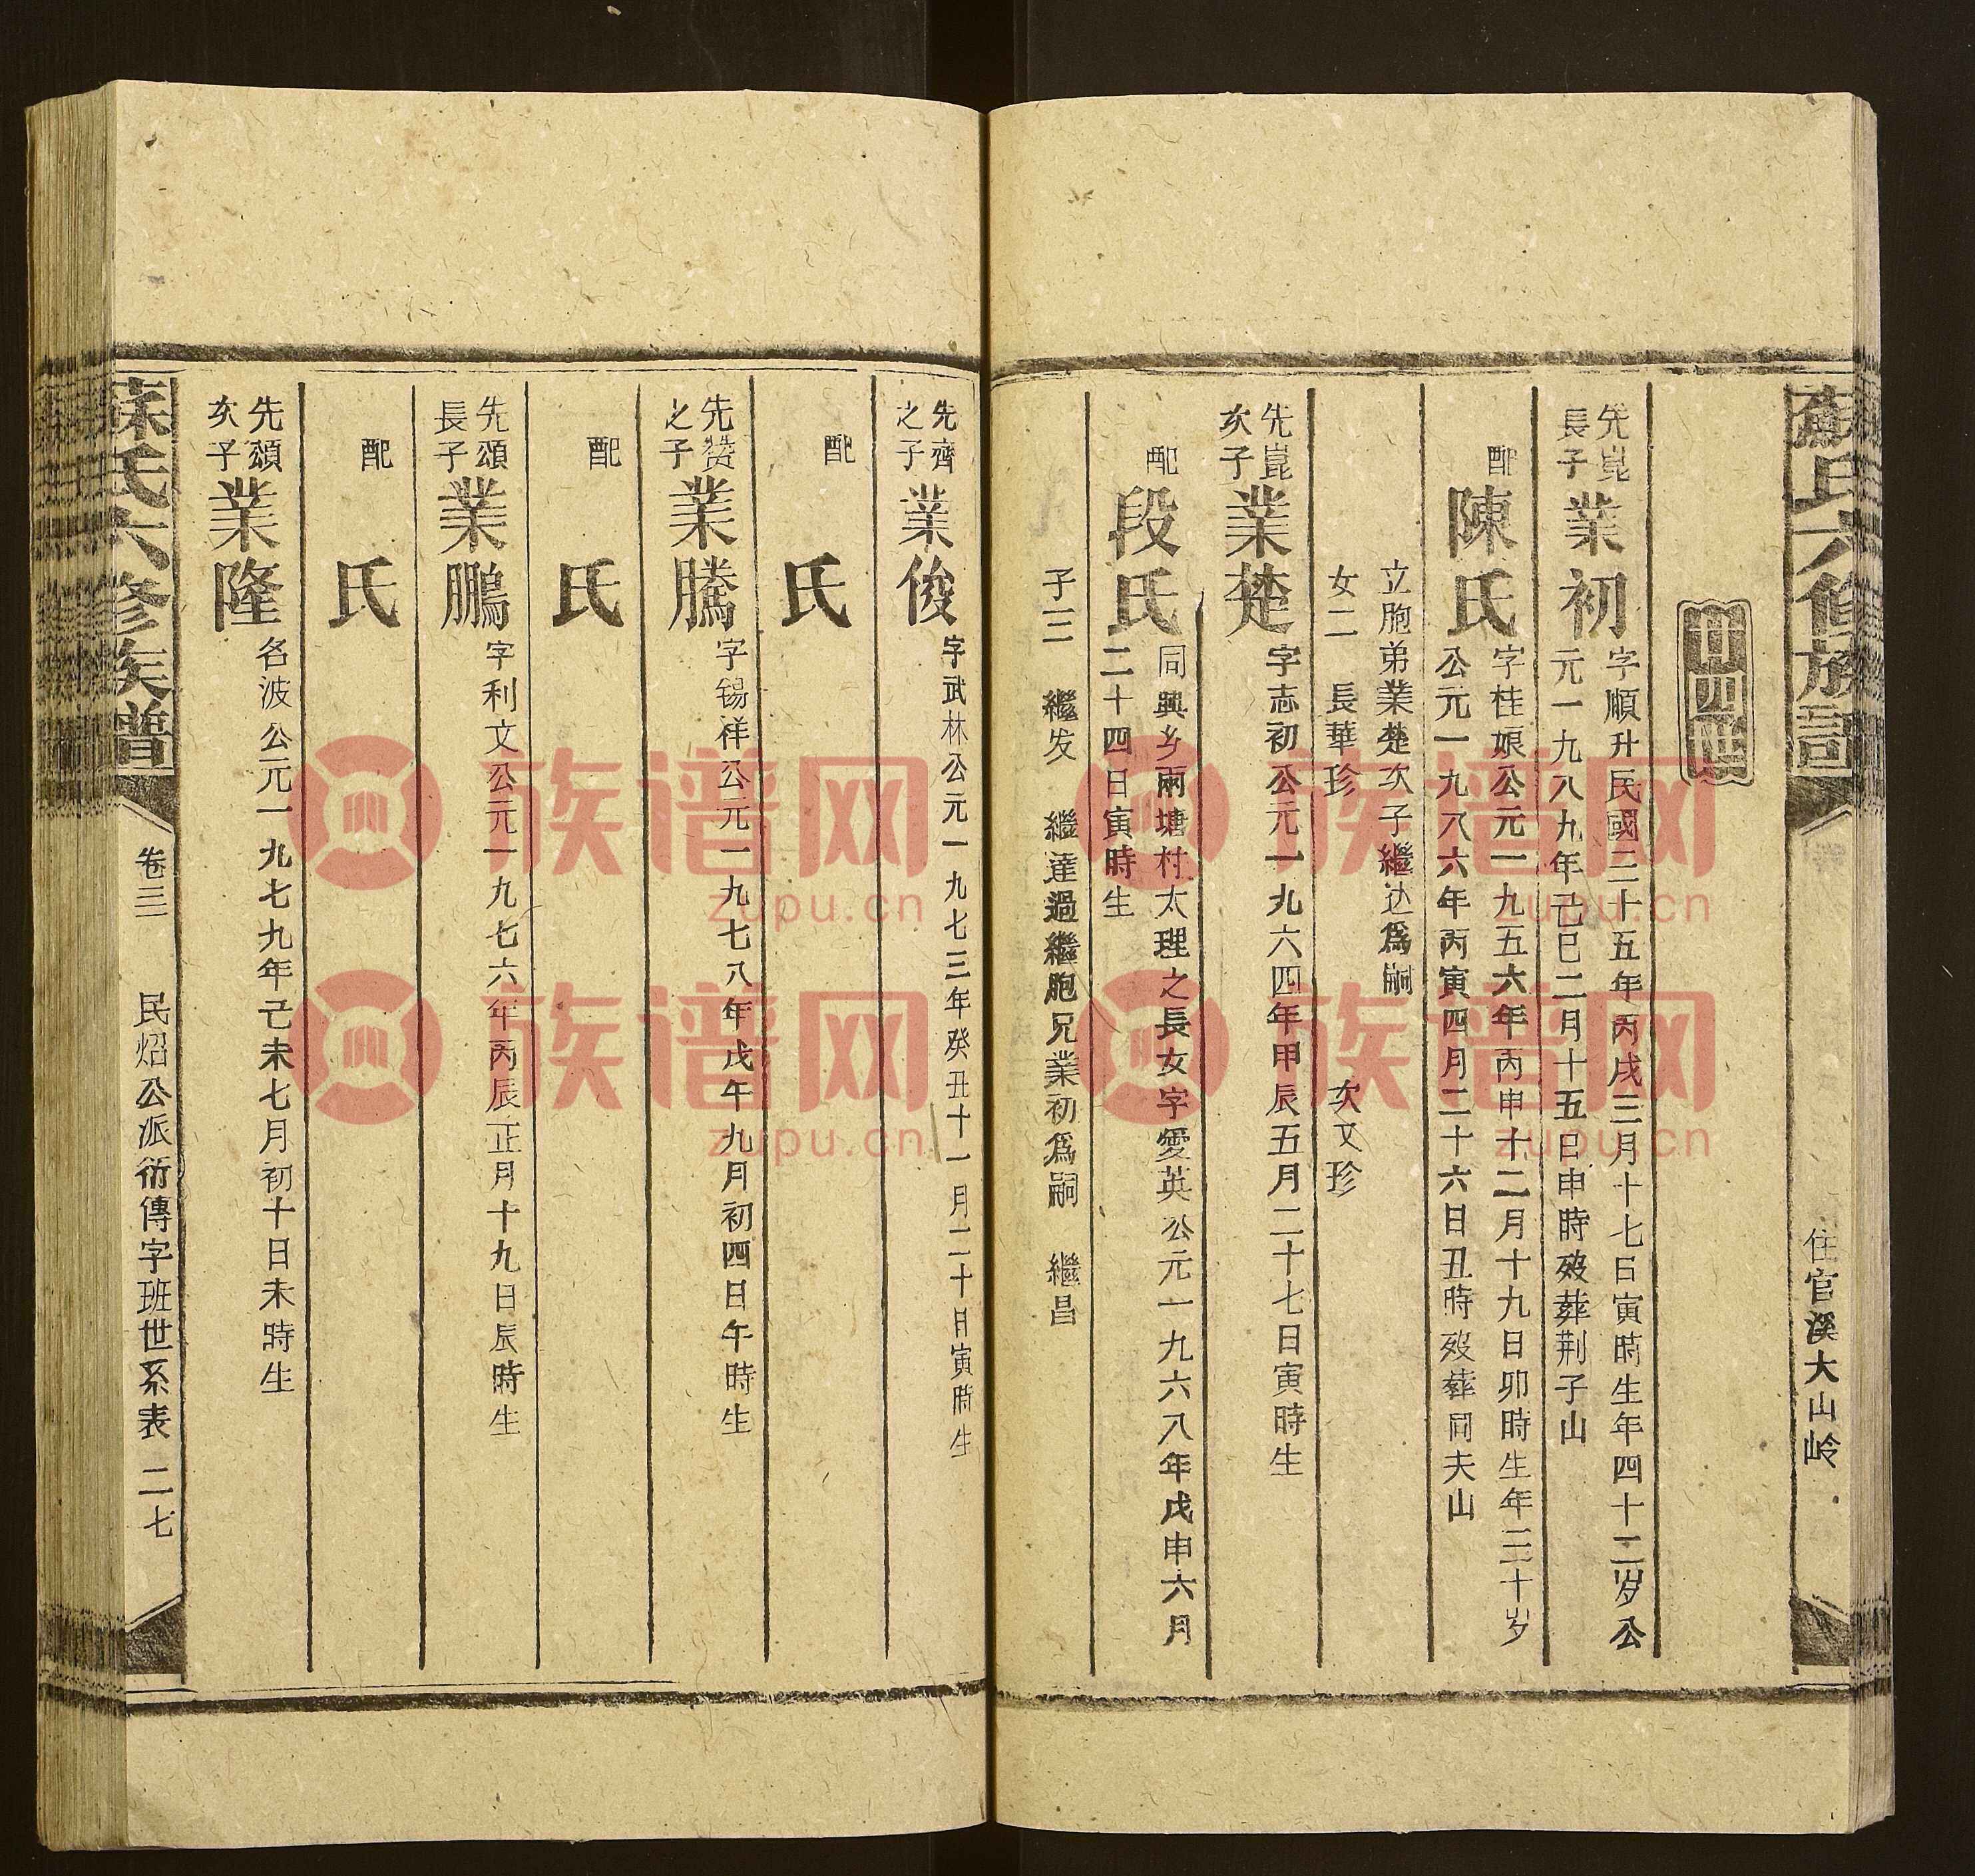 蘇氏六修族譜
住官溪大山岭
廿四世
先崑長子
業初
字順升民國二十五年丙戌三月十七日寅時生年四十二岁公
元一九八九年己巳二月十五日申時殁葬荆子山
配
陳氏
字桂娘公元一九五六年丙申十二月十九日卯時生年三十岁
公元一九八六年丙寅四月二十六日丑時殁葬同夫山
立胞弟業楚次子繼达爲嗣
女二 長華珍 次又珍
先崑次子
業楚
字志初公元一九六四年甲辰五月二十七日寅時生
配
段氏
同興乡兩塘村太理之長女字愛英公元一九六八年戊申六月
二十四日寅時生
子三 繼发 繼達過繼胞兄業初爲嗣 繼昌
先齊之子
業俊
字武林公元一九七三年癸丑十一月二十日寅時生
配
氏
先赞之子
業騰
字锡祥公元一九七八年戊午九月初四日午時生
配
氏
先頌長子
業鵬
字利文公元一九七六年丙辰正月十九日辰時生
配
氏
先頌次子
業隆
名波公元一九七九年己未七月初十日未時生
蘇氏六修族譜
卷三
民炤公派衍傳字班世系表 二七
族谱网
zupu.cn
族谱网
zupu.cn
族谱网
zupu.cn
族谱网
zupu.cn